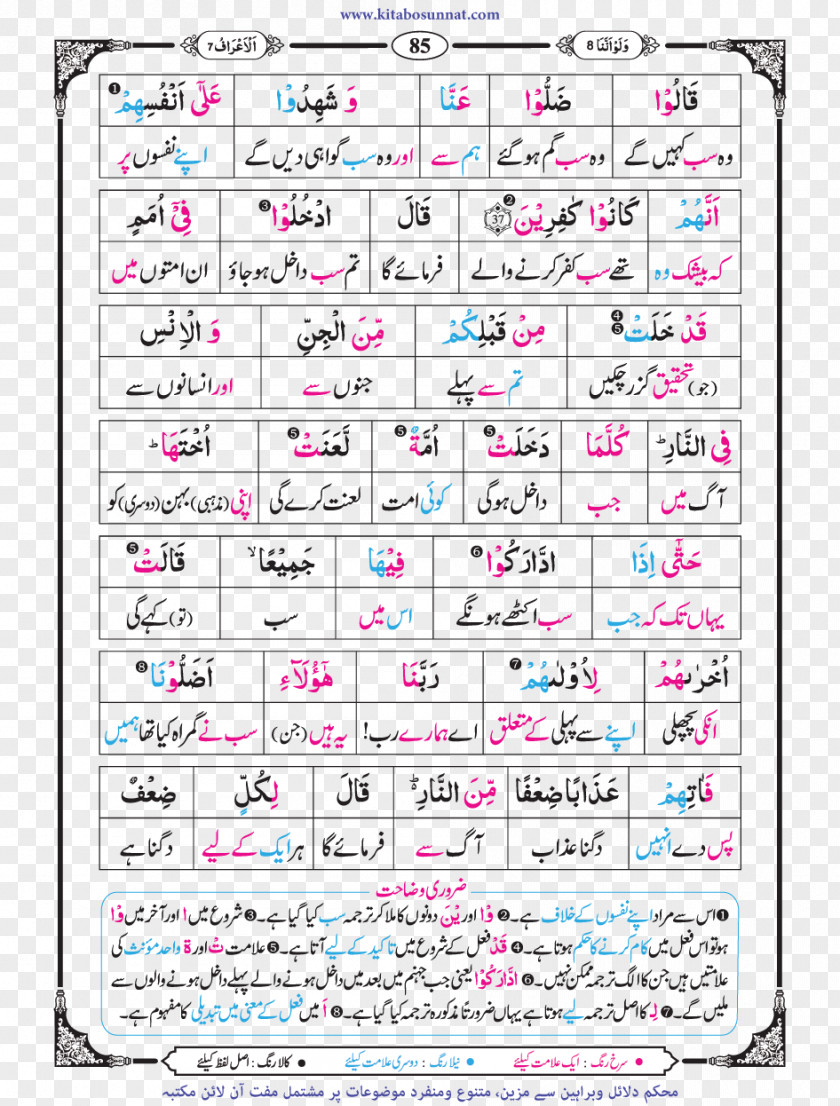 www.kitabosunnat.com
وَلَوْاَنَّنَا 8 85 اَلْاَعْرَافُ 7
قَالُوْا ضَلُّوْا عَنَّا وَ شَهِدُوْا عَلٰٓى اَنْفُسِهِمْ ❶
وہ سب کہیں گے وہ سب گم ہو گئے ہم سے اور وہ سب گواہی دیں گے اپنے نفسوں پر
اَنَّهُمْ كَانُوْا كٰفِرِيْنَ ❷ 37 قَالَ ادْخُلُوْا ❸ فِيْٓ اُمَمٍ
کہ بیشک وہ تھے سب کفر کرنے والے فرمائے گا تم سب داخل ہو جاؤ ان امتوں میں
قَدْ خَلَتْ ❹ ❺ مِنْ قَبْلِكُمْ مِّنَ الْجِنِّ وَ الْاِنْسِ
(جو) تحقیق گزر چکیں تم سے پہلے جنوں سے اور انسانوں سے
فِي النَّارِ ؕ كُلَّمَا دَخَلَتْ ❺ اُمَّةٌ ❺ لَّعَنَتْ ❺ اُخْتَهَا ؕ
آگ میں جب داخل ہوگی کوئی امت لعنت کرے گی اپنی (مذہبی) بہن (دوسری) کو
حَتّٰٓى اِذَا ادَّارَكُوْا ❻ فِيْهَا جَمِيْعًا ۙ قَالَتْ ❺
یہاں تک کہ جب سب اکٹھے ہونگے اس میں سب (تو) کہے گی
اُخْرٰىهُمْ لِاُوْلٰىهُمْ ❼ رَبَّنَا هٰٓؤُلَآءِ اَضَلُّوْنَا ❽
انکی پچھلی اپنے سے پہلی کے متعلق اے ہمارے رب! یہ ہیں (جن) سب نے گمراہ کیا تھا ہمیں
فَاٰتِهِمْ عَذَابًا ضِعْفًا مِّنَ النَّارِ ؕ قَالَ لِكُلٍّ ضِعْفٌ
پس دے انہیں دگنا عذاب آگ سے فرمائے گا ہر ایک کے لیے دگنا ہے
ضروری وضاحت
❶ اس سے مراد اپنے نفسوں کے خلاف ہے۔ ❷ وْا اور يْنَ دونوں کا ملا کر ترجمہ سب کیا گیا ہے۔ ❸ شروع میں ا اور آخر میں وْا
ہو تو اس فعل میں کام کرنے کا حکم ہوتا ہے۔ ❹ قَدْ فعل کے شروع میں تاکید کے لیے آتا ہے۔ ❺ علامت تْ اور ة واحد مؤنث کی
علامتیں ہیں جن کا الگ ترجمہ ممکن نہیں۔ ❻ ادَّارَكُوْا یعنی جب جہنم میں بعد میں داخل ہونے والے پہلے داخل ہونے والوں سے
ملیں گے۔ ❼ لِـ کا اصل ترجمہ لیے ہوتا ہے یہاں ضرورتاً مذکورہ ترجمہ کیا گیا ہے۔ ❽ اَ میں فعل کے معنی میں تبدیلی کا مفہوم ہے۔
● سرخ رنگ : ایک علامت کیلئے ● نیلا رنگ : دوسری علامت کیلئے ● کالا رنگ : اصل لفظ کیلئے
محکم دلائل وبراہین سے مزین، متنوع ومنفرد موضوعات پر مشتمل مفت آن لائن مکتبہ